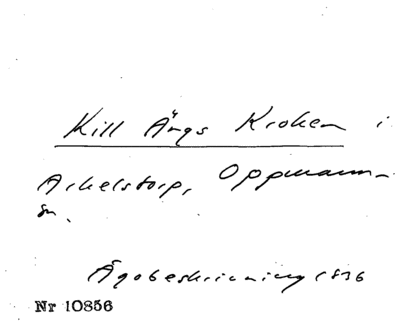 Kill Ängs Kroken i
Arkelstorp, Oppmann-
sn.
Ägobeskrivning 1836
Nr 10856